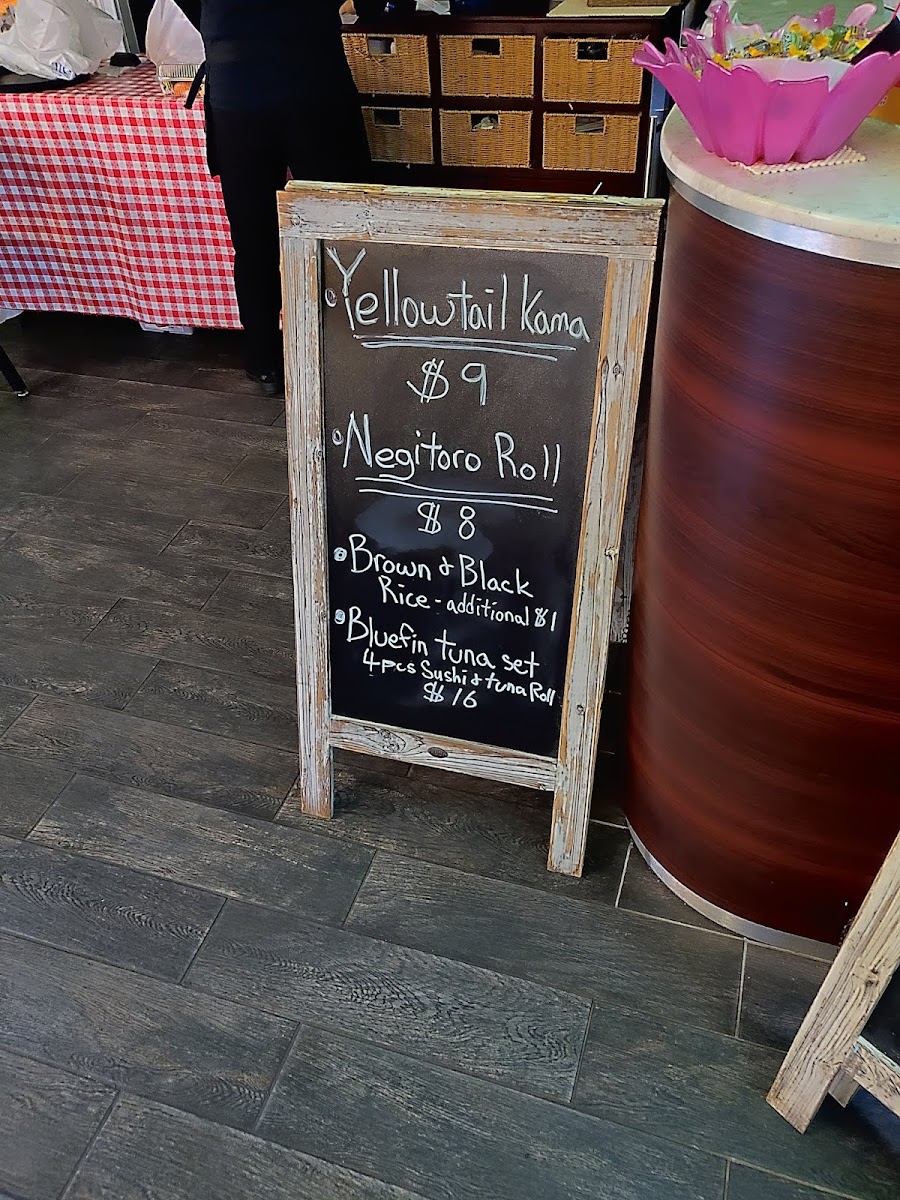 Yellowtail Kama
$9
Negitoro Roll
$8
Brown & Black
Rice - additional $1
Bluefin tuna set
4pcs Sushi & tuna Roll
$16